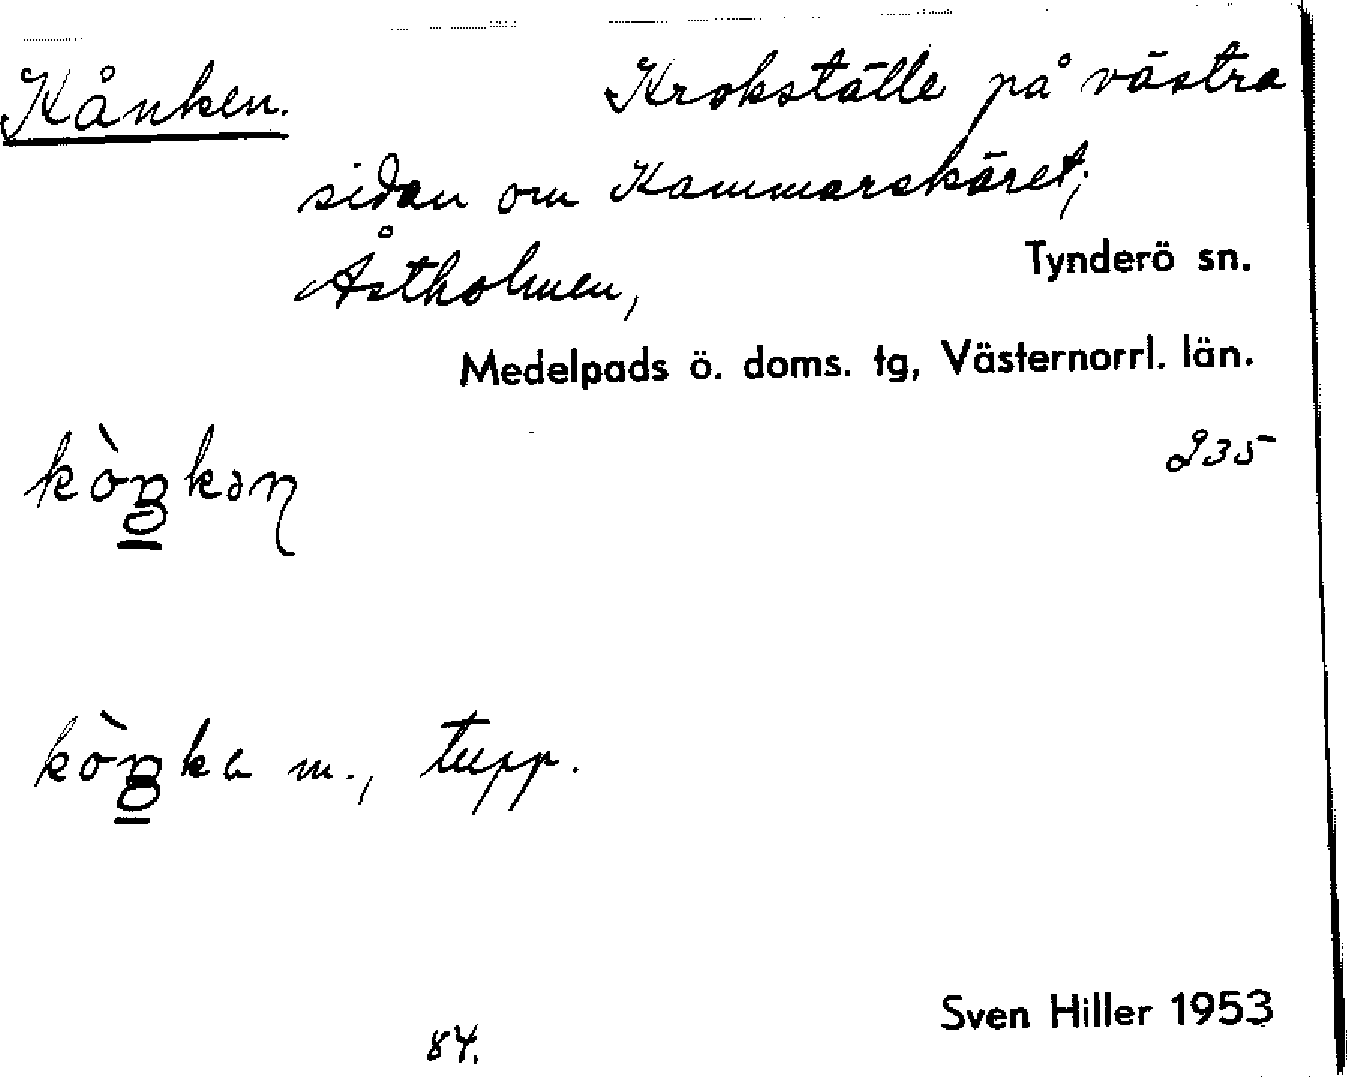 Kånken. Krokställe på västra
sidan om Kammarskäret,
Åstholmen, Tynderö sn.
Medelpads ö. doms. tg, Västernorrl. län.
kòŋkəɲ 235
kòŋka m., tupp.
Sven Hiller 1953
84.